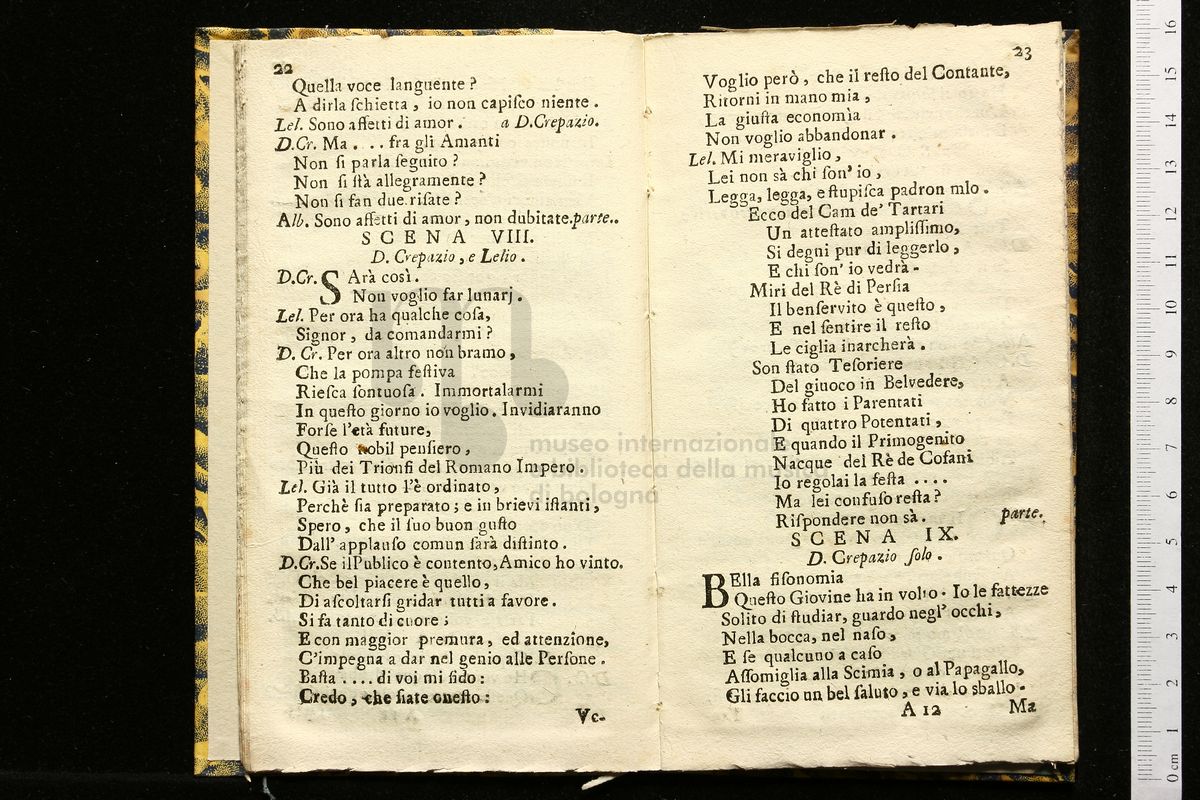 22
Quella voce languente ?
A dirla ſchietta , io non capiſco niente .
Lel. Sono affetti di amor . a D.Crepazio.
D.Cr. Ma . . . fra gli Amanti
Non ſi parla ſeguito ?
Non ſi ſtà allegramente ?
Non ſi fan due riſate ?
Alb. Sono affetti di amor , non dubitate.parte..
SCENA VIII.
D. Crepazio , e Lelio .
D.Cr. SArà così .
Non voglio far lunarj .
Lel. Per ora ha qualche coſa,
Signor , da comandarmi ?
D. Cr. Per ora altro non bramo ,
Che la pompa feſtiva
Rieſca ſontuoſa . Immortalarmi
In queſto giorno io voglio . Invidiaranno
Forſe l'età future,
Queſto nobil penſiero ,
Più dei Trionfi del Romano Impero .
Lel. Già il tutto l'è ordinato ,
Perchè ſia preparato ; e in brievi iſtanti ,
Spero , che il ſuo buon guſto
Dall' applauſo comun ſarà diſtinto .
D.Cr.Se ilPublico è contento,Amico ho vinto.
Che bel piacere è quello ,
Di aſcoltarſi gridar tutti a favore .
Si fa tanto di cuore ;
E con maggior premura , ed attenzione,
C'impegna a dar nel genio alle Perſone .
Baſta . . . . di voi mi fido :
Credo , che ſiate oneſto :
Ve-
23
Voglio però , che il reſto del Contante,
Ritorni in mano mia ,
La giuſta economìa
Non voglio abbandonar .
Lel. Mi meraviglio ,
Lei non sà chi ſon' io ,
Legga, legga, e ſtupiſca padron mIo .
Ecco del Cam de' Tartari
Un atteſtato ampliſſimo,
Si degni pur di leggerlo ,
E chi ſon' io vedrà -
Miri del Rè di Perſia
Il benſervito è queſto ,
E nel ſentire il reſto
Le ciglia inarcherà .
Son ſtato Teſoriere
Del giuoco in Belvedere,
Ho fatto i Parentati
Di quattro Potentati ,
E quando il Primogenito
Nacque del Rè de Cofani
Io regolai la feſta . . . .
Ma lei confuſo reſta ?
Riſpondere non sà . parte.
SCENA IX.
D. Crepazio ſolo .
BElla fiſonomia
Queſto Giovine ha in volto . Io le fattezze
Solito di ſtudiar, guardo negl' occhi ,
Nella bocca, nel naſo ,
E ſe qualcuno a caſo
Aſſomiglia alla Scimia , o al Papagallo,
Gli faccio un bel ſaluto , e via lo sballo -
A 12 Ma
museo internazionale
e biblioteca della musica
di bologna
16
15
14
13
12
11
10
9
8
7
6
5
4
3
2
1
0 cm